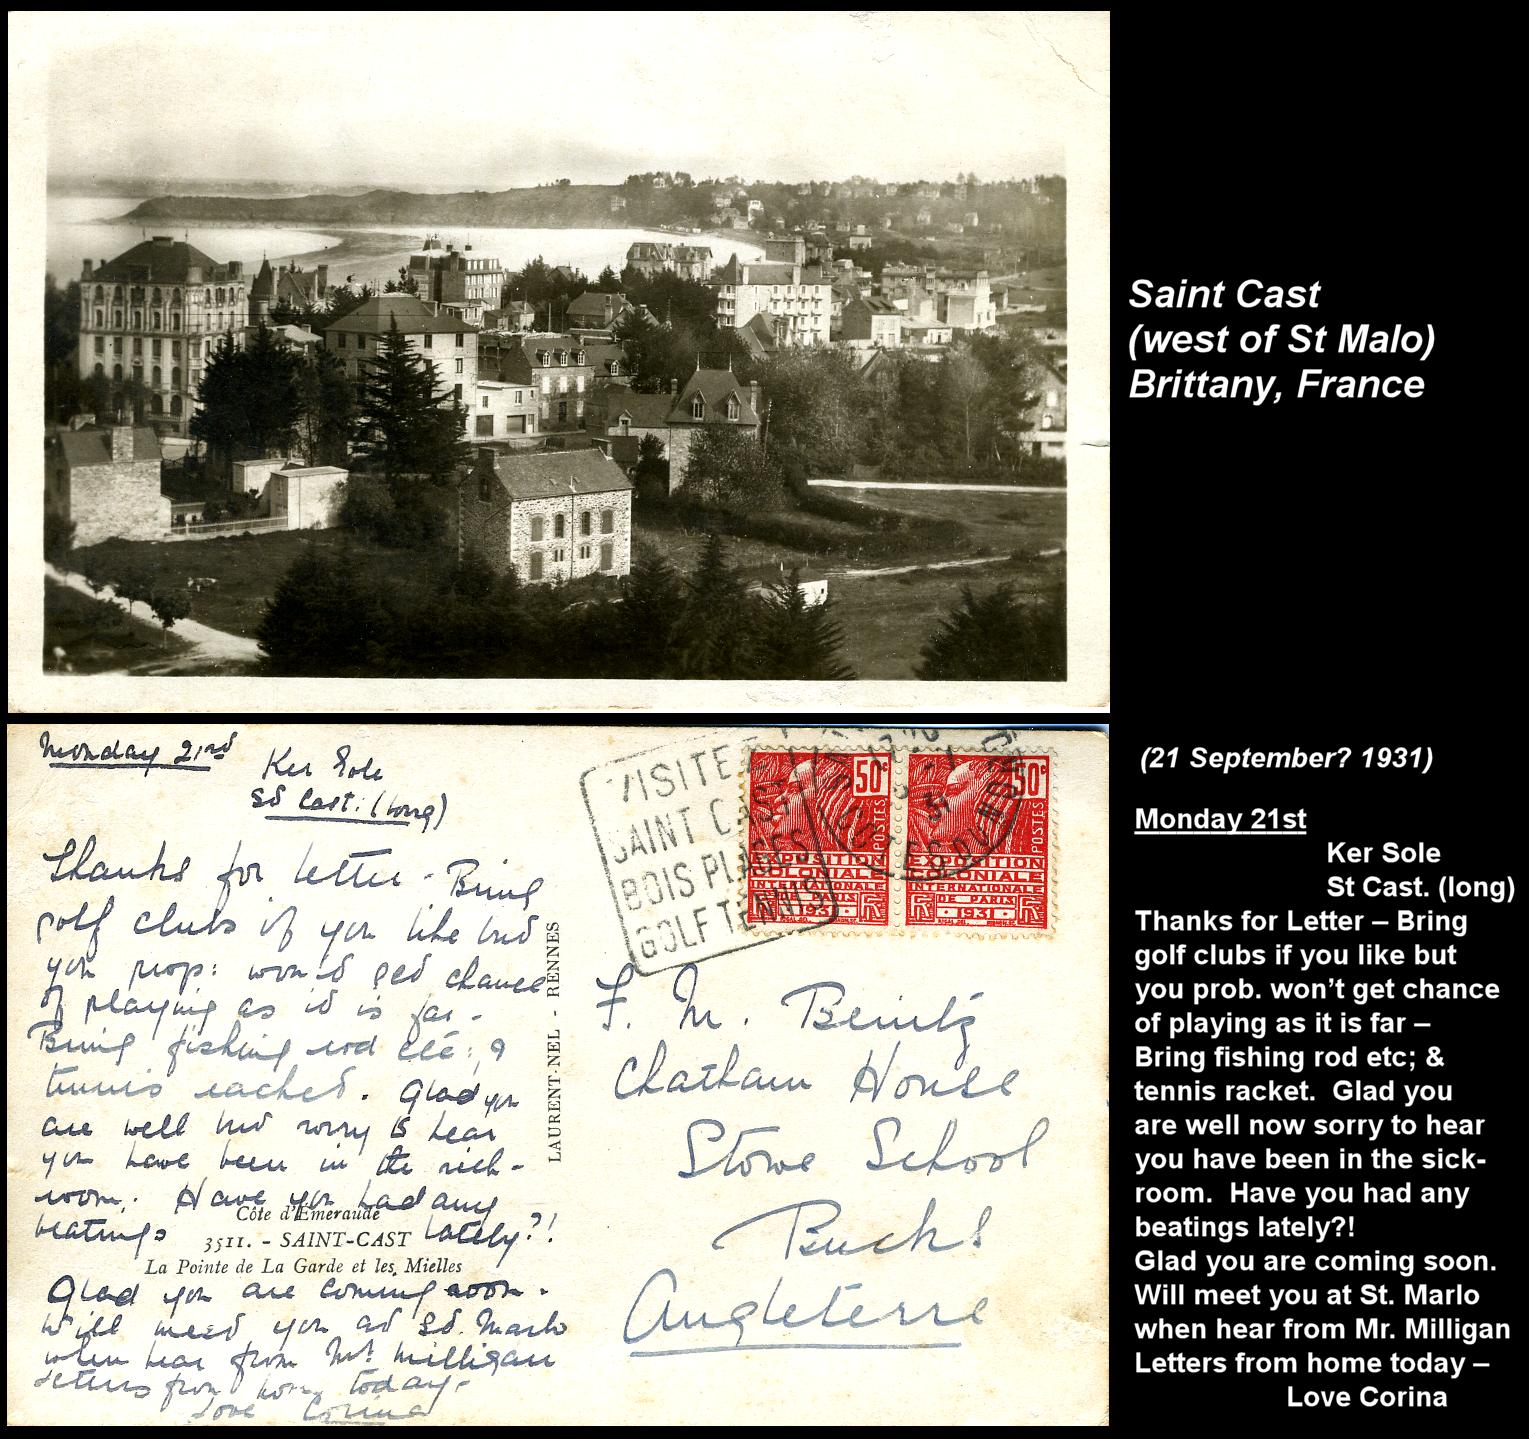 Saint Cast
(west of St Malo)
Brittany, France
Monday 21rd
Ker Sole
St Cast. (long)
Thanks for letter - Bring
golf clubs if you like but
you prop: won't get chance
of playing as it is far -
Bring fishing rod etc: &
tennis racket. Glad you
are well but sorry to hear
you have been in the sick-
room. Have you had any
beatings lately?!
Côte d'Emeraude
3511. - SAINT-CAST
La Pointe de La Garde et les Mielles
Glad you are coming soon.
Will meet you at St. Marlo
when hear from Mr. Milligan
Letters from home today -
Love Corina
LAURENT-NEL - RENNES
VISITEZ
SAINT CAST
BOIS PLAGES
GOLF TENNIS
COTES DU NORD
50c
POSTES
EXPOSITION
COLONIALE
INTERNATIONALE
DE PARIS
1931
50c
POSTES
EXPOSITION
COLONIALE
INTERNATIONALE
DE PARIS
1931
F. M. Benitz
Chatham House
Stowe School
Bucks
Angleterre
(21 September? 1931)
Monday 21st
Ker Sole
St Cast. (long)
Thanks for Letter – Bring
golf clubs if you like but
you prob. won't get chance
of playing as it is far –
Bring fishing rod etc; &
tennis racket. Glad you
are well now sorry to hear
you have been in the sick-
room. Have you had any
beatings lately?!
Glad you are coming soon.
Will meet you at St. Marlo
when hear from Mr. Milligan
Letters from home today –
Love Corina